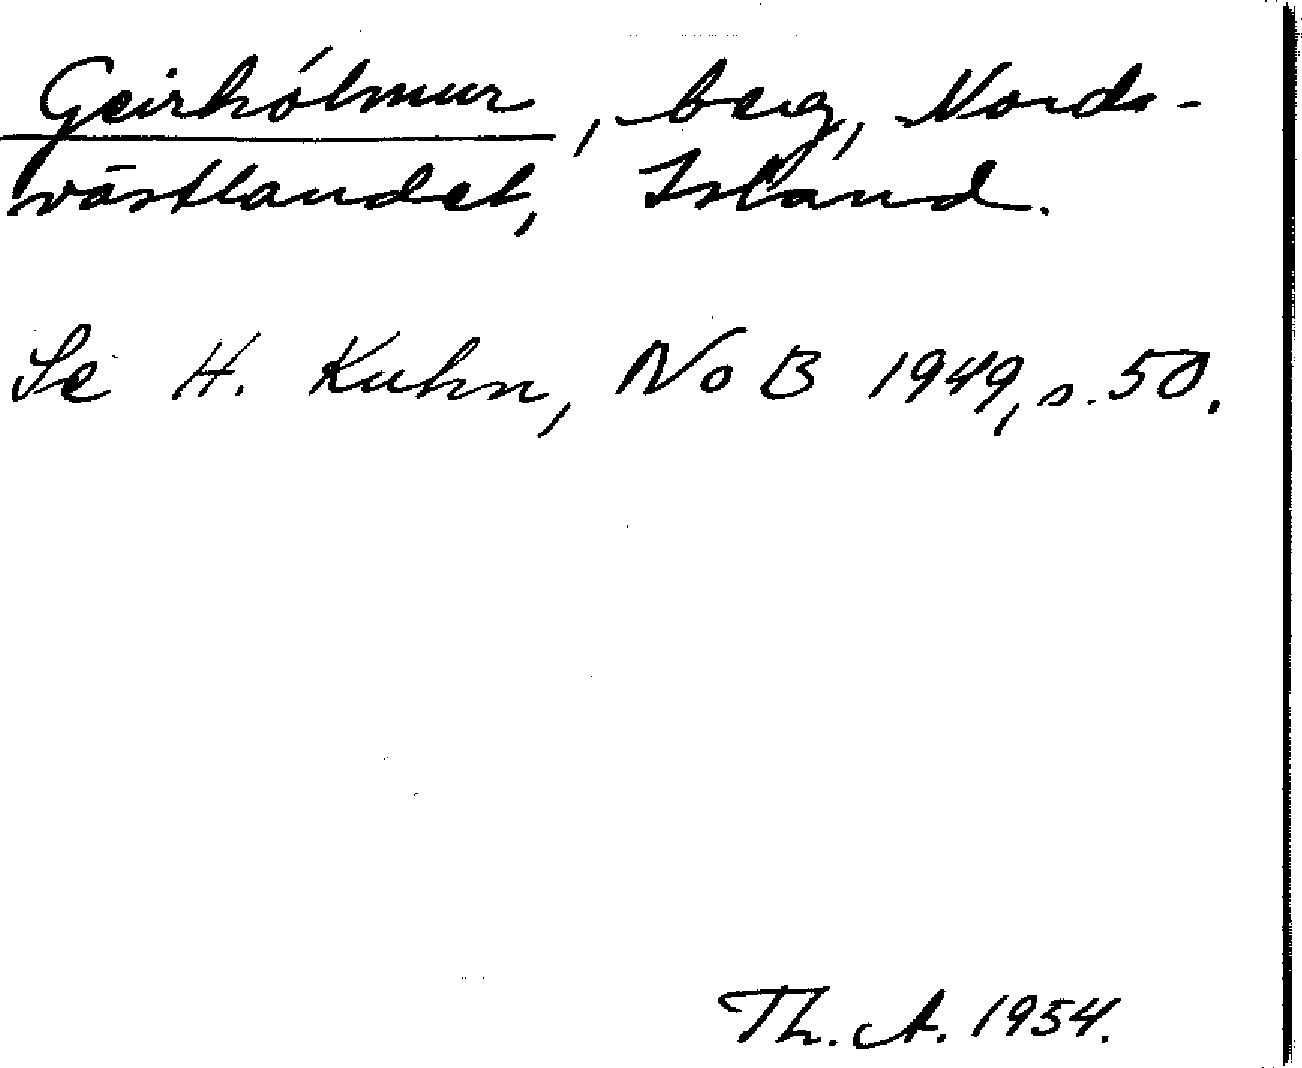 Geirhólmur, berg, Nord-
västlandet, Island.
Se H. Kuhn, NoB 1949, s. 50.
Th. A. 1954.